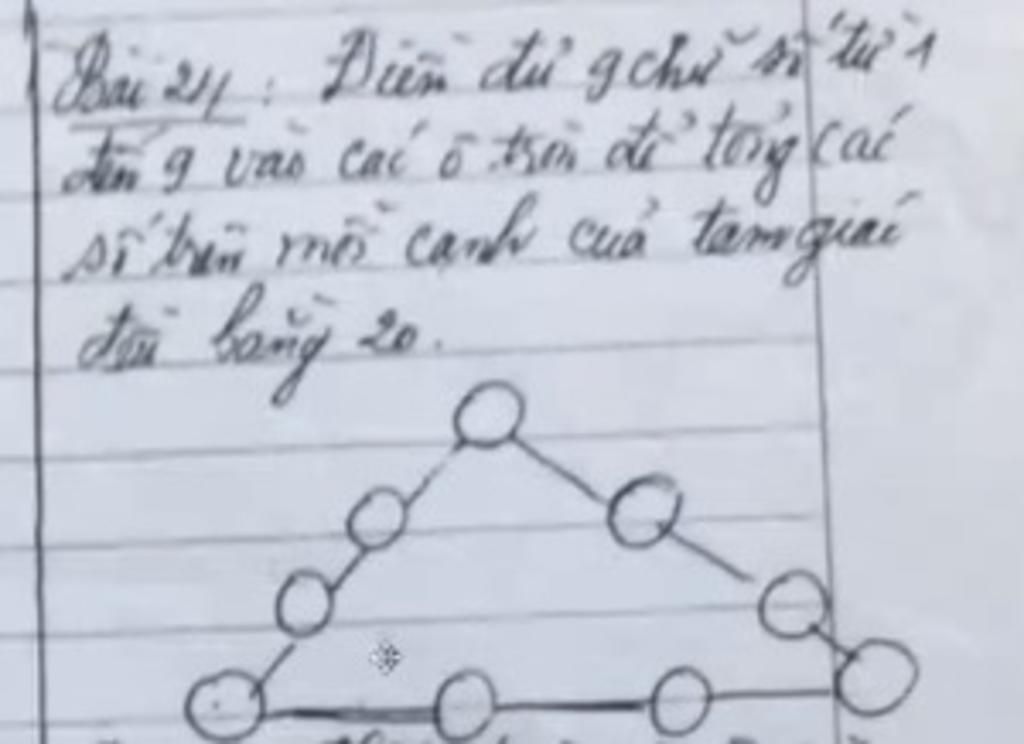 Bài 24 : Điền đủ 9 chữ số từ 1
đến 9 vào các ô tròn để tổng các
số trên mỗi cạnh của tam giác
đều bằng 20.